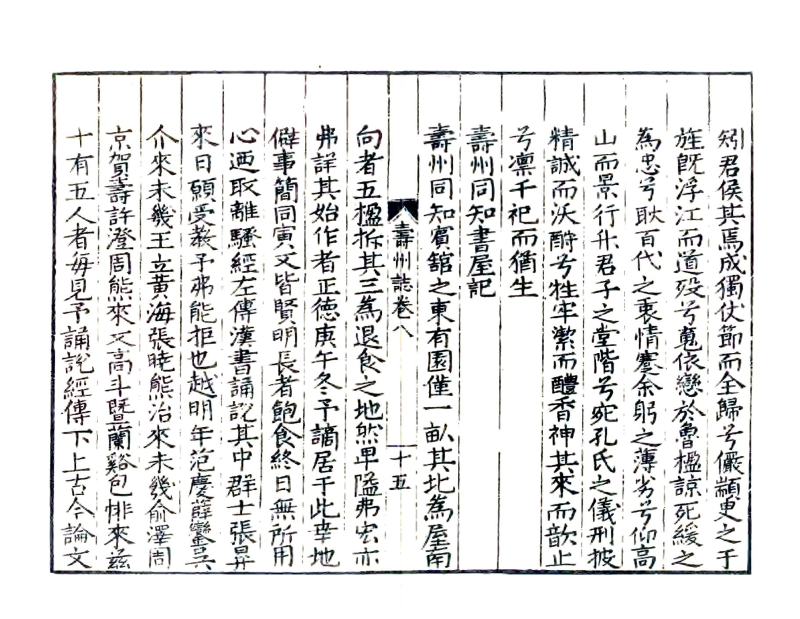 矧君侯其焉成獨仗節而全歸兮儼顓臾之于
旌旣浮江而道歿兮䰟依戀於曹楹諒死緩之
為忠兮耿百代之衷情蹇余躬之薄劣兮仰高
山而景行升君子之堂階兮宛孔氏之儀刑披
精誠而沃酹兮牲牢潔而醴香神其來而歆止
兮凛千祀而猶生
壽州同知書屋記
壽州同知賓舘之東有園僅一畝其北為屋南
壽州誌卷八
十五
向者五楹拆其三為退食之地然卑隘弗宏亦
弗詳其始作者正德庚午冬予謫居于此幸地
僻事簡同寅又皆賢明長者飽食終日無所用
心迺取離騷經左傳漢書誦說其中群士張昇
來日願受教予弗能拒也越明年范慶薛鑾吳
介來未幾王立黃海張曉熊治來未幾俞澤周
京賀壽許澄周熊來又高斗暨蘭谿包悱來玆
十有五人者每見予誦說經傳下上古今論文